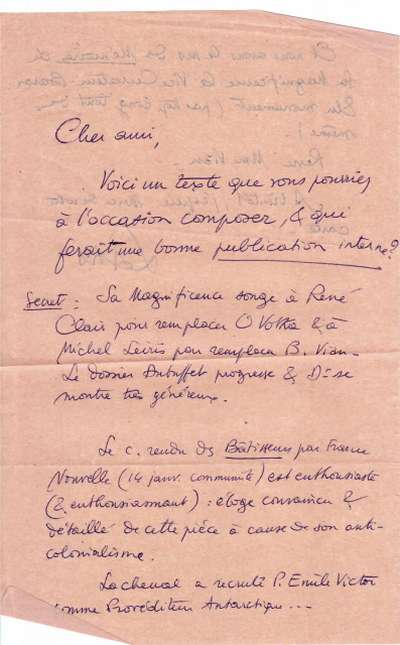 Cher ami,
Voici un texte que vous pourriez
à l'occasion composer, & qui
ferait une bonne publication interne?
Secret : Sa Magnificence songe à René
Clair pour remplacer O Votka & à
Michel Leiris pour remplacer B. Vian.
Le dossier Dubuffet progresse & D. se
montre très généreux.
Le c. rendu des Bâtisseurs par France
Nouvelle (14 janv. communiste) est enthousiaste
(& enthousiasmant) : éloge convaincu &
détaillé de cette pièce à cause de son anti-
colonialisme.
Lachenal a recruté P. Emile Victor
comme Provéditeur Antarctique...